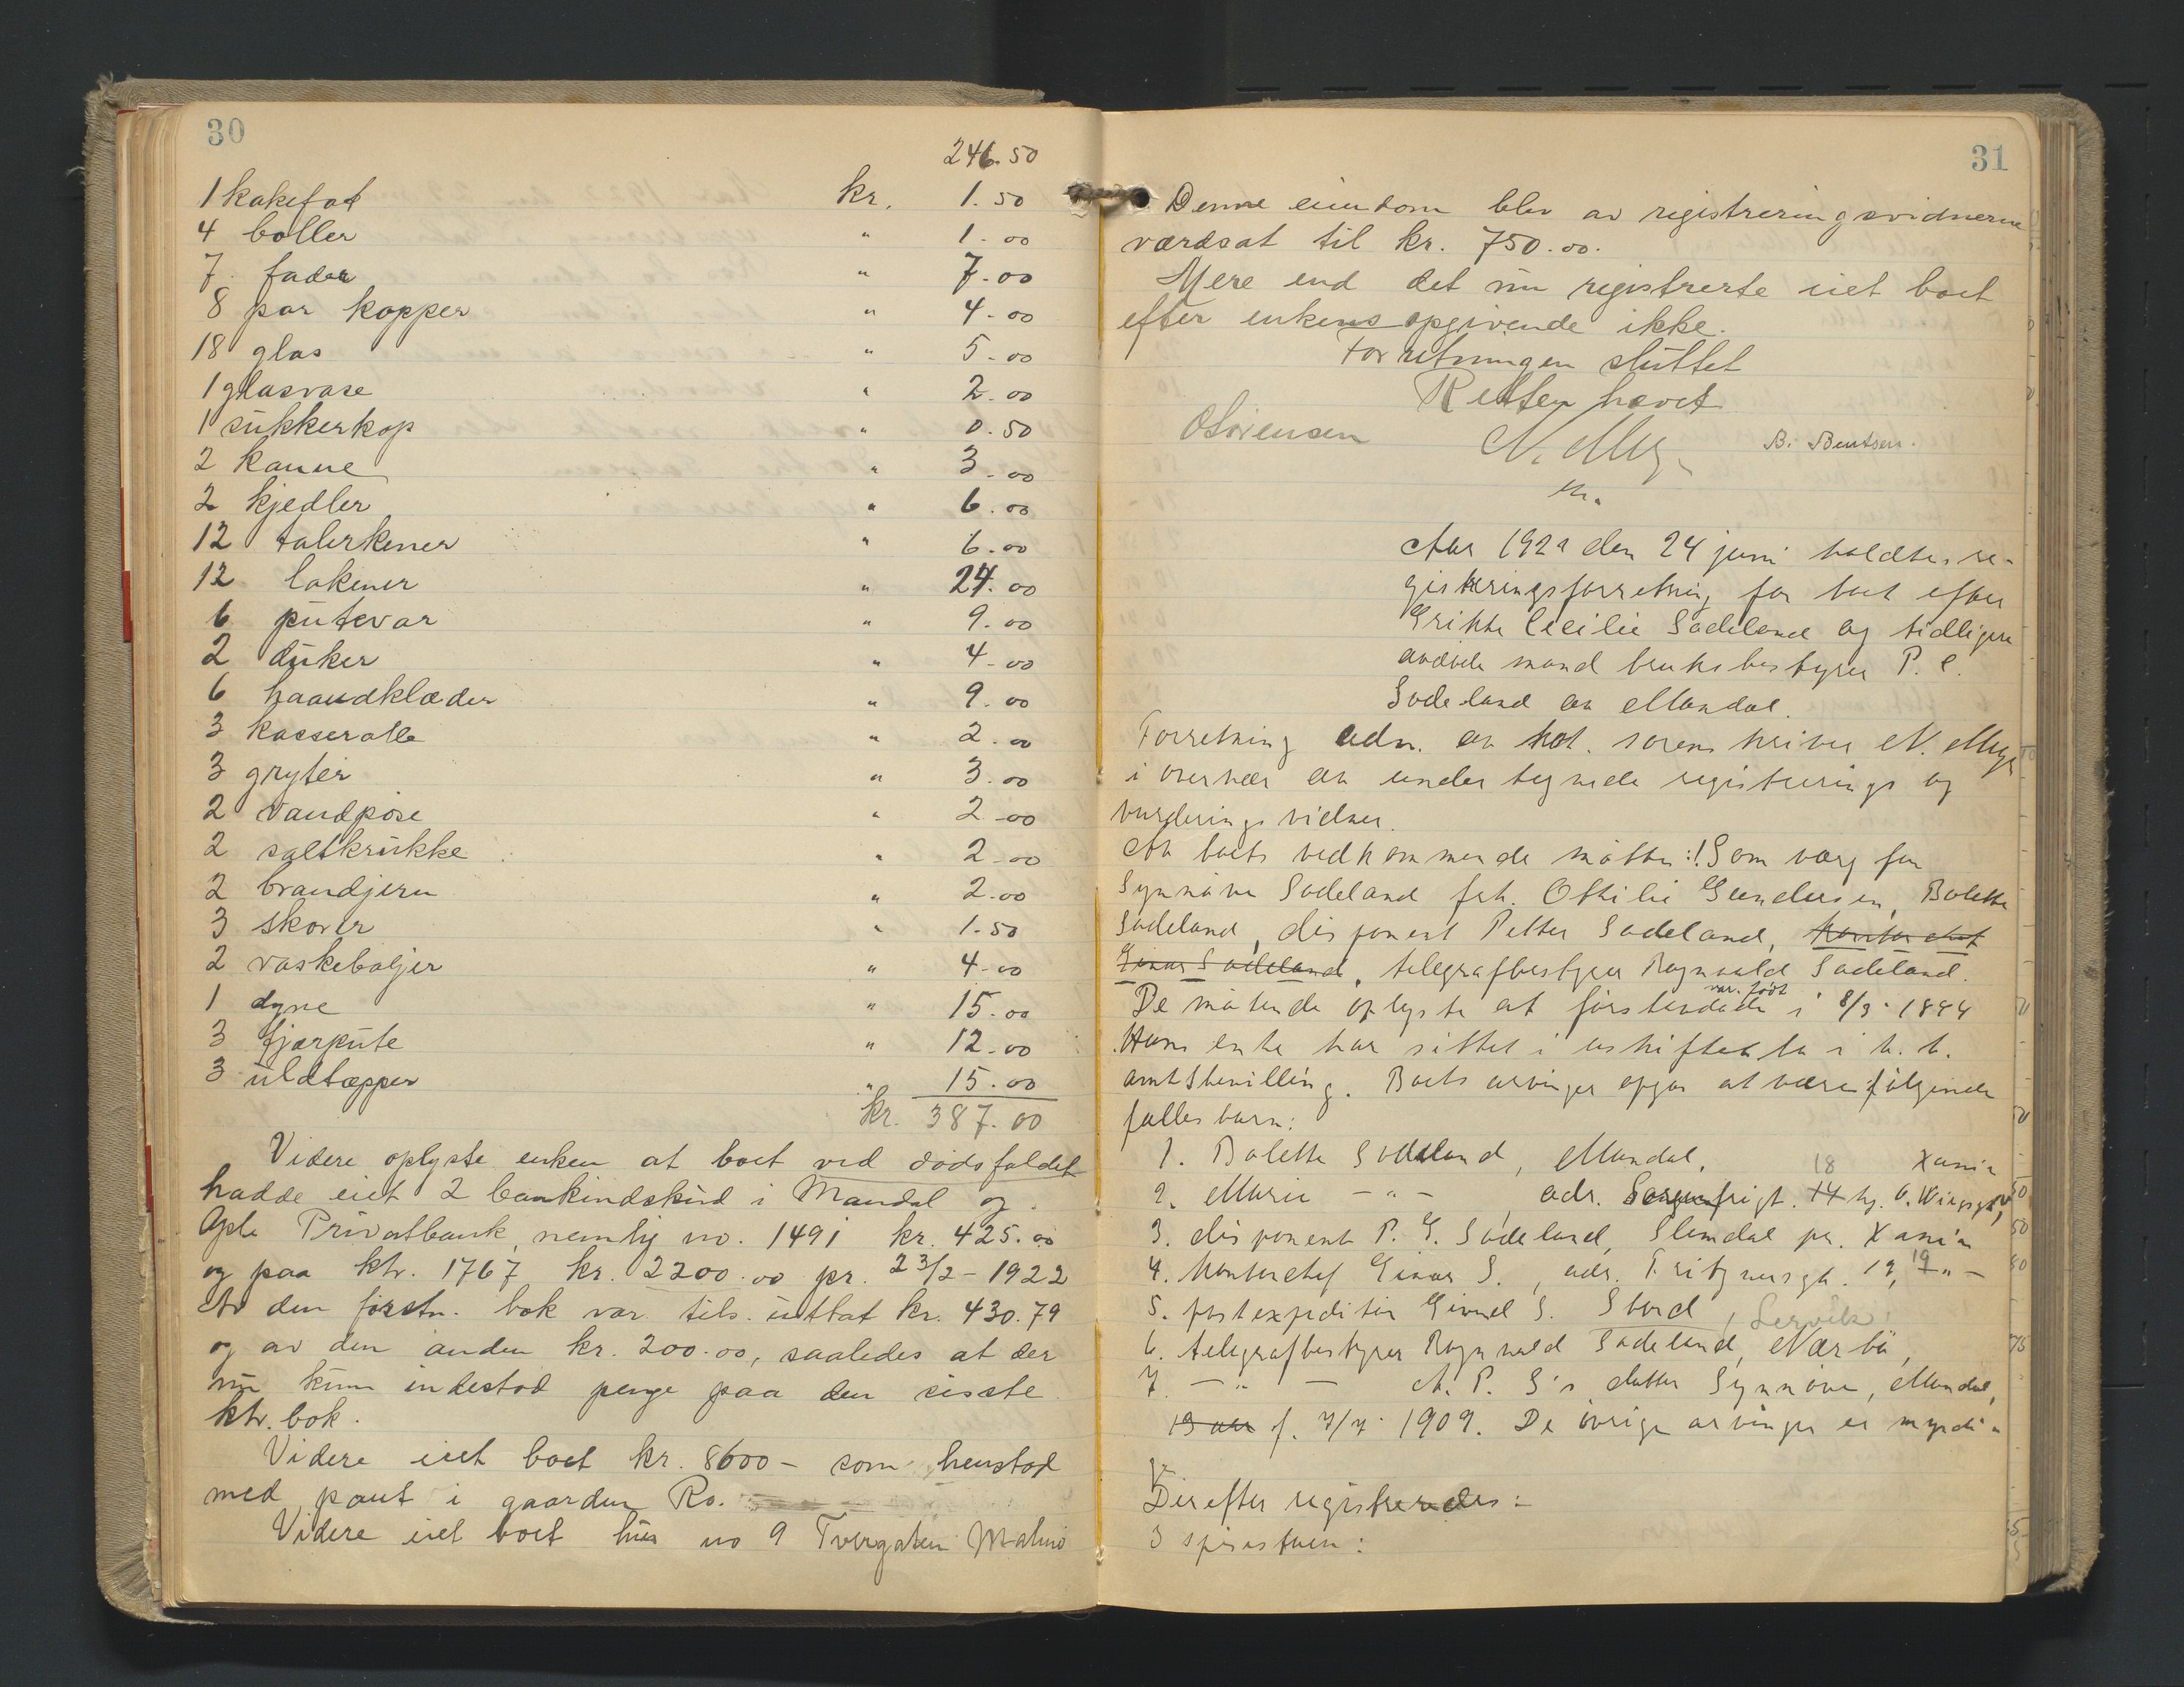 30
246.50
1 kakefat kr. 1.50
4 boller " 1-00
7 fader " 7-00
8 par kopper " 4-00
18 glas " 5-00
1 glasvase " 2-00
1 sukkerkop " 0.50
2 kanne " 3-00
2 kjedler " 6.00
12 talerkener " 6.00
12 lakener " 24.00
6 putevar " 9.00
2 duker " 4-00
6 haandklæder " 9.00
3 kasserolle " 2.00
3 gryter " 3.00
2 vandpøse " 2-00
2 saltkrukke " 2-00
2 brandjern " 2.00
3 skorer " 1.50
2 vaskebaljer " 4-00
1 dyne " 15.00
3 fjærpute " 12-00
3 uldtæpper " 15.00
kr. 387.00
Videre oplyste enken at boet ved dødsfaldet
hadde eiet 2 bankindskud i Mandal og
Opl. Privatbank, nemlig no. 1491 kr. 425.00
og paa ktr. 1767 kr. 2200.00 pr. 23/2-1922
Av den førstn. bok var tils. uttat kr. 430.79
og av den anden kr. 200.00, saaledes at der
nu kun indestod penge paa den sisste
ktr. bok.
Videre eiet boet kr. 8600- som henstod
med pant i gaarden Ro.
Videre eiet boet hus no 9 Tvergaten Malmø
31
Denne eiendom blev av registreringsvidnerne
værdsat til kr. 750.00.
Mere end det nu registrerte eiet boet
efter enkens opgivende ikke.
Forretningen sluttet
Retten hævet
O Sørensen N. Myhre B. Bentsen.
Aar 1922 den 24 juni holdtes re-
gistreringsforretning for boet efter
Grikke Cecilie Sødeland og tidligere
avdøde mand bruksbestyrer P. C.
Sødeland av Mandal.
Forretning adm. av kst. sorenskriver N. Myhre
i overvær av undertegnede registrerings og
vurderingsvidner.
Av boets vedkommende møtte: Som værg for
Synnøve Sødeland frk. Othilie Gundersen, Bolette
Sødeland, disponent Petter Sødeland, kontorchef
Einar Sødeland, telegrafbestyrer Ragnvald Sødeland.
De møtende oplyste at førstavdøde var født i 8/3-1844
Hans enke har sittet i uskiftet bo i h. t.
amtsbevilling. Boets arvinger opgas at være følgende
fælles barn:
1. Bolette Sødeland, Mandal.
2. Marie -"- , adr. Sorgenfrigt. 14 18 hj. O. Wiingsgt, Xania
3. disponent P. G. Sødeland, Slemdal pr. Xania
4. kontorchef Einar S., adr. Fritznersgt. 12, 19 -"-
5. postexpeditør Eivind S. Stord, Lervik
6. telegrafbestyrer Ragnvald Sødeland, Nærbø,
7. -"- A. P. S's datter Synnøve, Mandal,
13 aar f. 7/7-1909. De øvrige arvinger er myndi-
ge.
Derefter registrerdes:
I spisestuen: